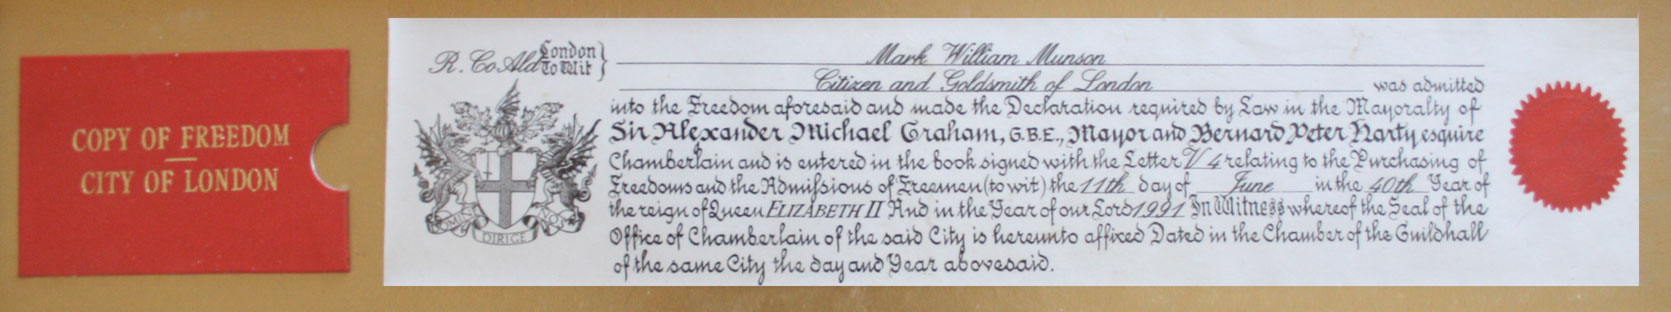 COPY OF FREEDOM
CITY OF LONDON
R. Co Ald London To Wit } Mark William Munson
Citizen and Goldsmith of London was admitted
into the Freedom aforesaid and made the Declaration required by Law in the Mayoralty of
Sir Alexander Michael Graham, G.B.E., Mayor and Bernard Peter Harty esquire
Chamberlain and is entered in the book signed with the Letter V 4 relating to the Purchasing of
Freedoms and the Admissions of Freemen (to wit) the 11th day of June in the 40th Year of
the reign of Queen ELIZABETH II And in the Year of our Lord 1991 In Witness whereof the Seal of the
Office of Chamberlain of the said City is hereunto affixed Dated in the Chamber of the Guildhall
of the same City the day and Year abovesaid.
DIRIGE